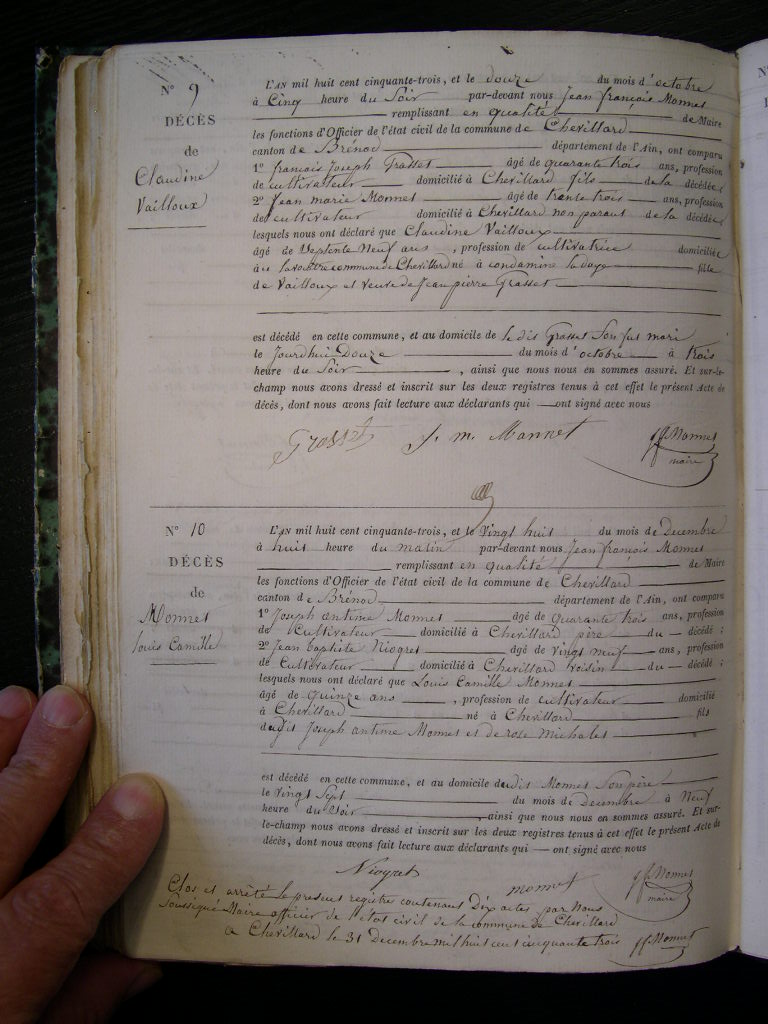 N° 9
DÉCÈS
de
Claudine
Vailloux
L'AN mil huit cent cinquante-trois, et le douze du mois d'octobre
à Cinq heure du Soir par-devant nous Jean françois Monnet
remplissant en qualité de Maire
les fonctions d'Officier de l'état civil de la commune de Chevillard
canton de Brénod département de l'Ain, ont comparu
1° françois Joseph Grasset âgé de quarante trois ans, profession
de cultivateur domicilié à Chevillard fils de la décédée,
2° Jean marie Monnet âgé de trente trois ans, profession
de cultivateur domicilié à Chevillard non parent de la décédée,
lesquels nous ont déclaré que Claudine Vailloux
âgé de Septente Neuf ans, profession de cultivatrice domiciliée
commune de Chevillard né à condamine la doye fille
de Vailloux et veuve de Jean pierre Grasset
est décédé en cette commune, et au domicile de le dit Grasset Son mari
le Jourdhui Douze du mois d'octobre à trois
heure du Soir, ainsi que nous nous en sommes assuré. Et sur-le-
champ nous avons dressé et inscrit sur les deux registres tenus à cet effet le présent Acte de
décès, dont nous avons fait lecture aux déclarants qui ont signé avec nous
Grasset J. m. Monnet jf Monnet
maire
N° 10
DÉCÈS
de
Monnet
louis Camille
L'AN mil huit cent cinquante-trois, et le Vingt huit du mois de Decembre
à huit heure du matin par-devant nous Jean françois Monnet
remplissant en qualité de Maire
les fonctions d'Officier de l'état civil de la commune de Chevillard
canton de Brénod département de l'Ain, ont comparu
1° Joseph antime Monnet âgé de quarante trois ans, profession
de Cultivateur domicilié à Chevillard père du décédé ;
2° Jean baptiste Niogret âgé de vingt neuf ans, profession
de Cultivateur domicilié à Chevillard voisin du décédé ;
lesquels nous ont déclaré que Louis Camille Monnet
âgé de quinze ans, profession de cultivateur domicilié
à Chevillard né à Chevillard fils
dudit Joseph antime Monnet et de rose michales
est décédé en cette commune, et au domicile dudit Monnet Son père
le Vingt Sept du mois de decembre à Neuf
heure du Soir, ainsi que nous nous en sommes assuré. Et sur-
le-champ nous avons dressé et inscrit sur les deux registres tenus à cet effet le présent Acte de
décès, dont nous avons fait lecture aux déclarants qui ont signé avec nous
Niogret monnet jf Monnet
maire
Clos et arrêté le present registre contenant Dix actes par Nous
Soussigné Maire officier de l'état civil de la commune de Chevillard
a Chevillard le 31 Decembre mil huit cent cinquante trois jf Monnet